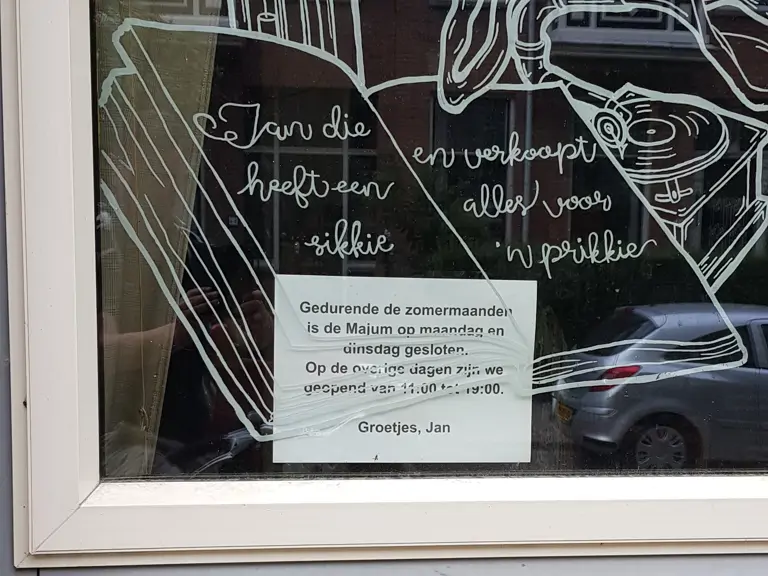 Jan die
heeft een
sikkie
en verkoopt
alles voor
'n prikkie
Gedurende de zomermaanden
is de Majum op maandag en
dinsdag gesloten.
Op de overige dagen zijn we
geopend van 11:00 tot 19:00.
Groetjes, Jan